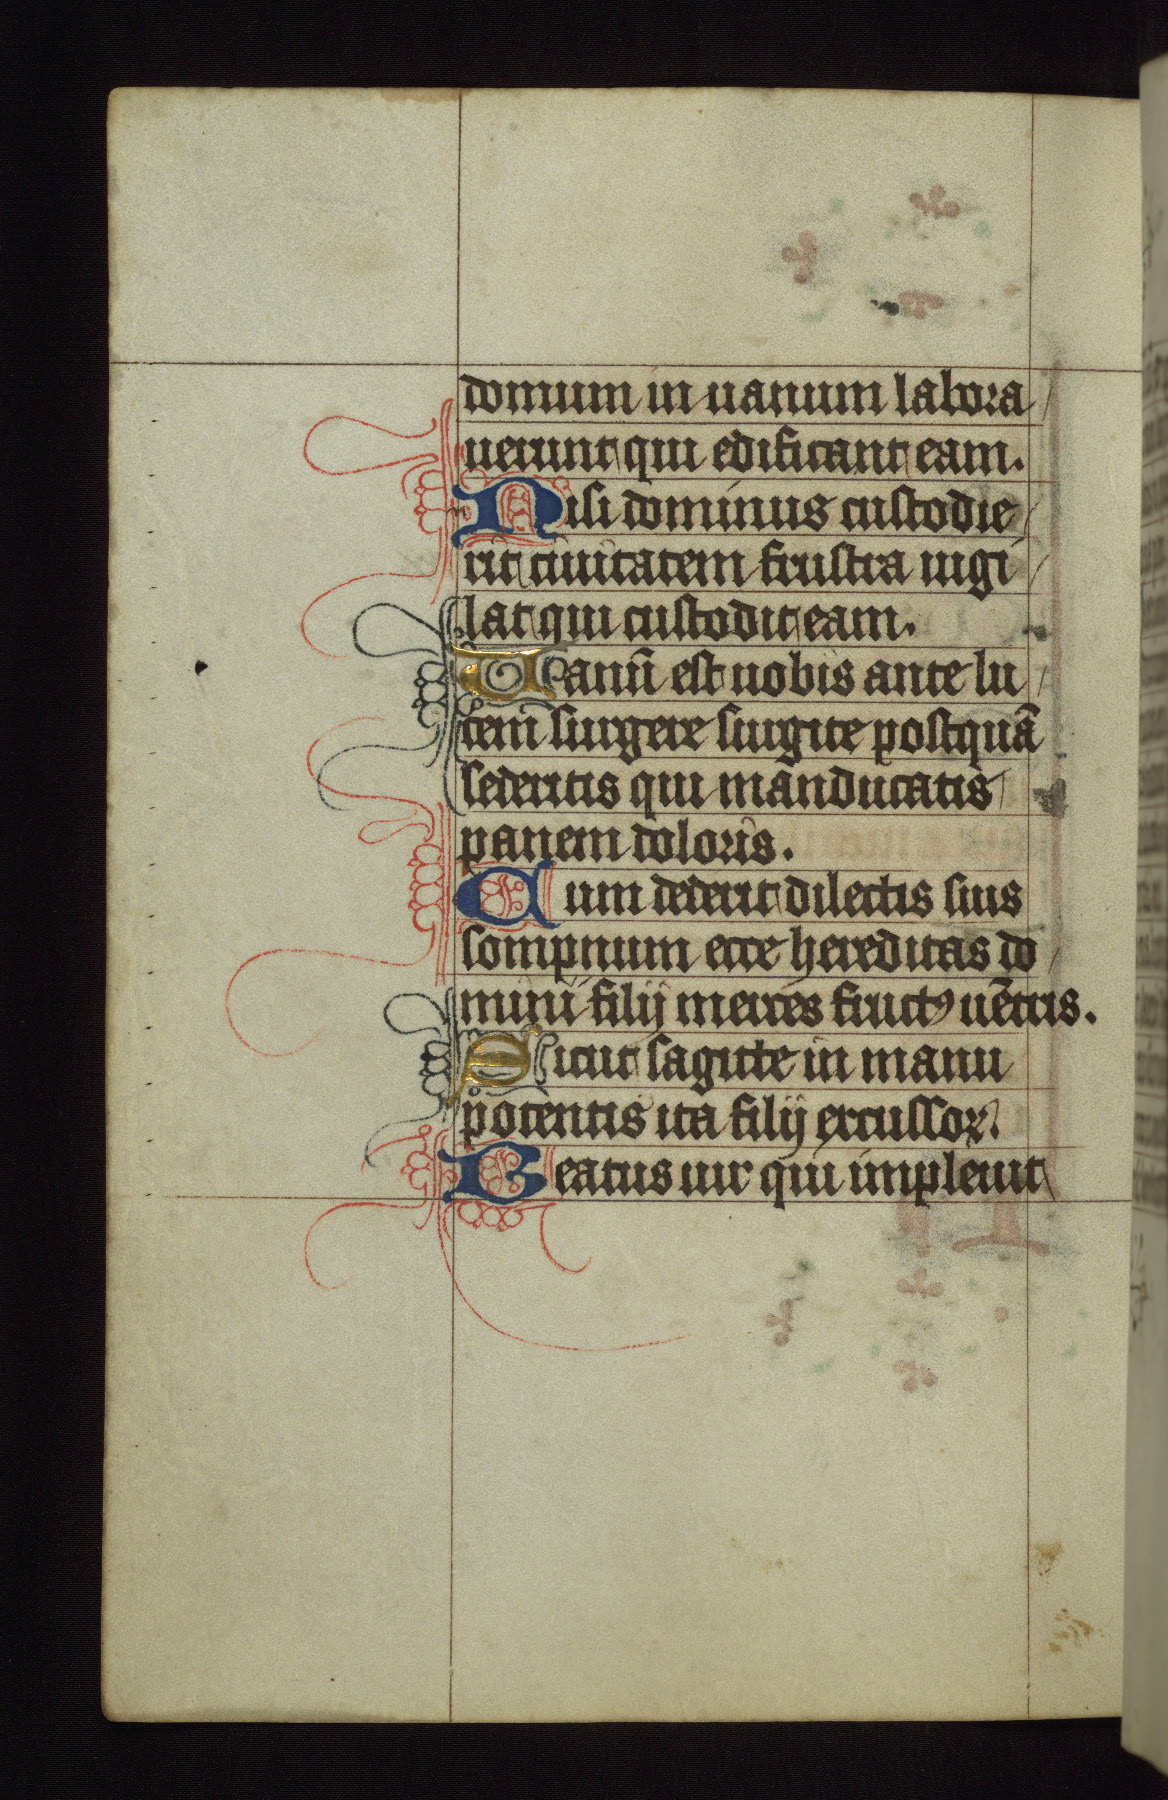 domum in uanum labora
uerunt qui edificant eam.
Nisi dominus custodie
rit ciuitatem frustra uigi
lat qui custodit eam.
Uanū est uobis ante lu
cem surgere surgite postquā
sederitis qui manducatis
panem doloris.
Cum dederit dilectis suis
sompnum ecce hereditas do
mini filij merces fructꝰ uētris.
Sicut sagitte in manu
potentis ita filij excussoꝝ.
Beatus uir qui impleuit